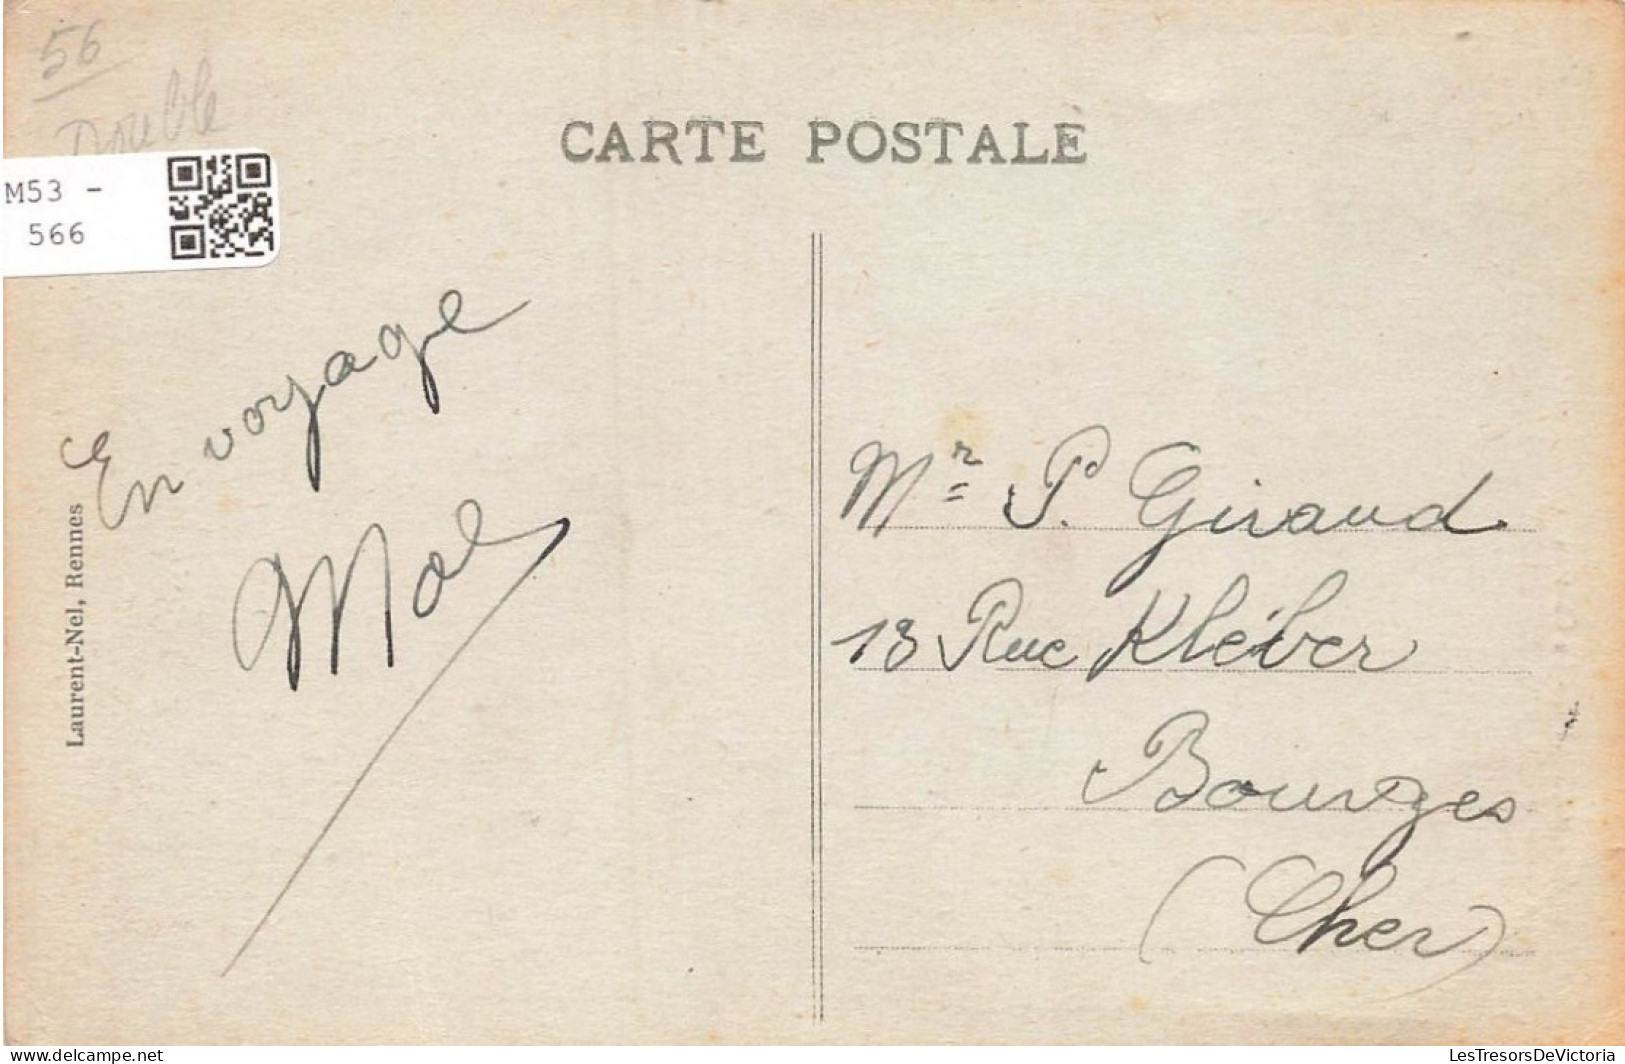 56
Double
M53 -
566
CARTE POSTALE
Laurent-Nel, Rennes
En voyage
Mr P. Giraud
13 Rue Kléber
Bourges
(Cher)
delcampe.net
LesTresorsDeVictoria